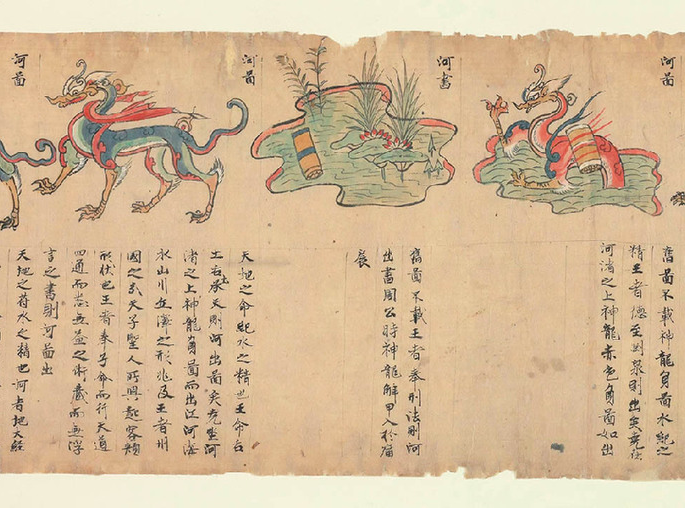 河圖
舊圖不載神龍負圖水紀之
精王者德至渕泉則出矣堯在
河渚之上神龍赤色負圖如出
河書
舊圖不載王者奉刑法則河
出書周公時神龍解甲入於
河圖
天地之命紀水之精也王命
土右承天則河出圖矣堯坐河
渚之上神龍負圖而出江河海
水山川丘澤之形兆及王者州
國之分天子聖人所興起容顔
形狀也王者奉命而行天道
四通而悲無益之術藏而無浮
言之書則河圖出
天地之符水之精也河者地大經